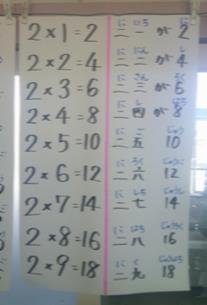 2×1=2
2×2=4
2×3=6
2×4=8
2×5=10
2×6=12
2×7=14
2×8=16
2×9=18
に いち に
二 一 が 2
に にん し
二 二 が 4
に さん ろく
二 三 が 6
に し はち
二 四 が 8
に ご じゅう
二 五 10
に ろく じゅうに
二 六 12
に しち じゅうし
二 七 14
に はち じゅうろく
二 八 16
に く じゅうはち
二 九 18